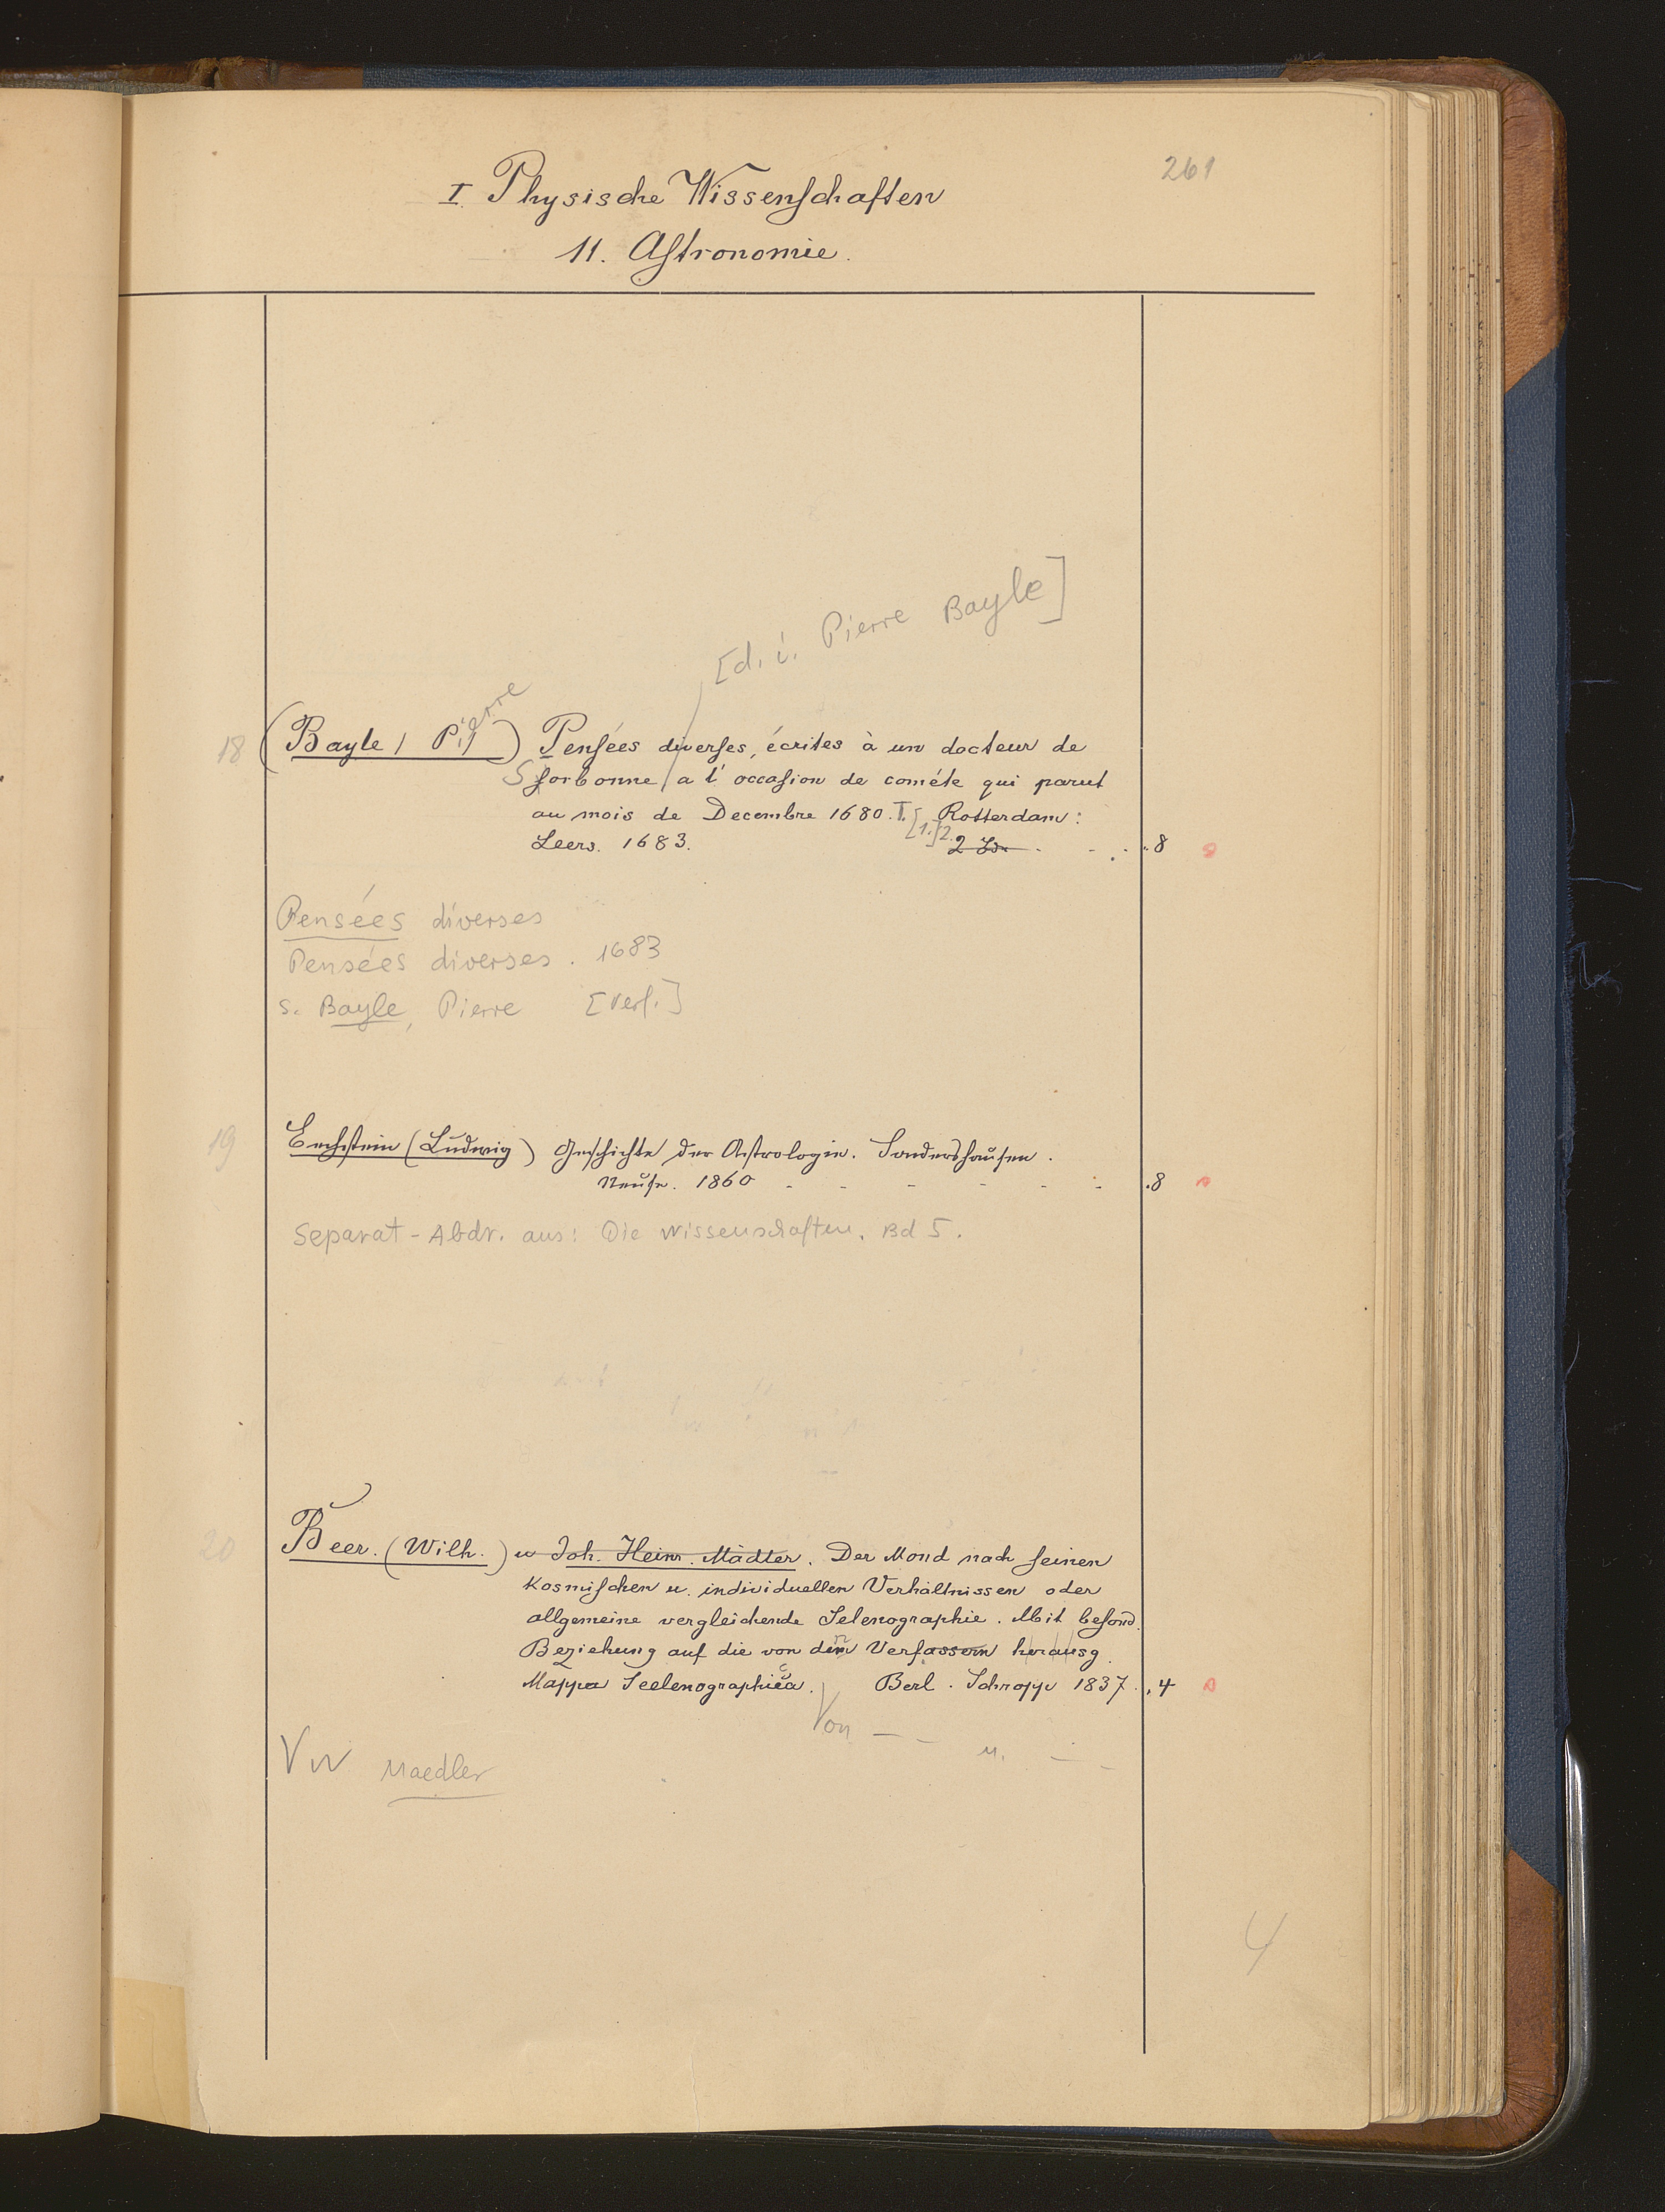 261
I. Physische Wissenschaften
11. Astronomie.
[d. i. Pierre Bayle]
18 (Bayle, Pierre) Pensées diverses, écrites à un docteur de
Sorbonne a l'occasion de cométe qui parut
au mois de Decembre 1680. T. [1.] 2. Rotterdam:
Leers. 1683. .8
Pensées diverses
Pensées diverses. 1683
s. Bayle, Pierre [Verf.]
19 Bechstein (Ludwig) Geschichte der Astrologie. Sondershausen.
Neuse. 1860 - - - - - - .8
Separat-Abdr. aus: Die Wissenschaften. Bd 5.
20 Beer. (Wilh.) u Joh. Heinr. Mädler. Der Mond nach seinen
kosmischen u. individuellen Verhältnissen oder
allgemeine vergleichende Selenographie. Mit besond.
Beziehung auf die von den Verfassern herausg.
Mappa Seelenographica. Berl. Schropp 1837. .4
Von — - u. — -
VW Maedler
4